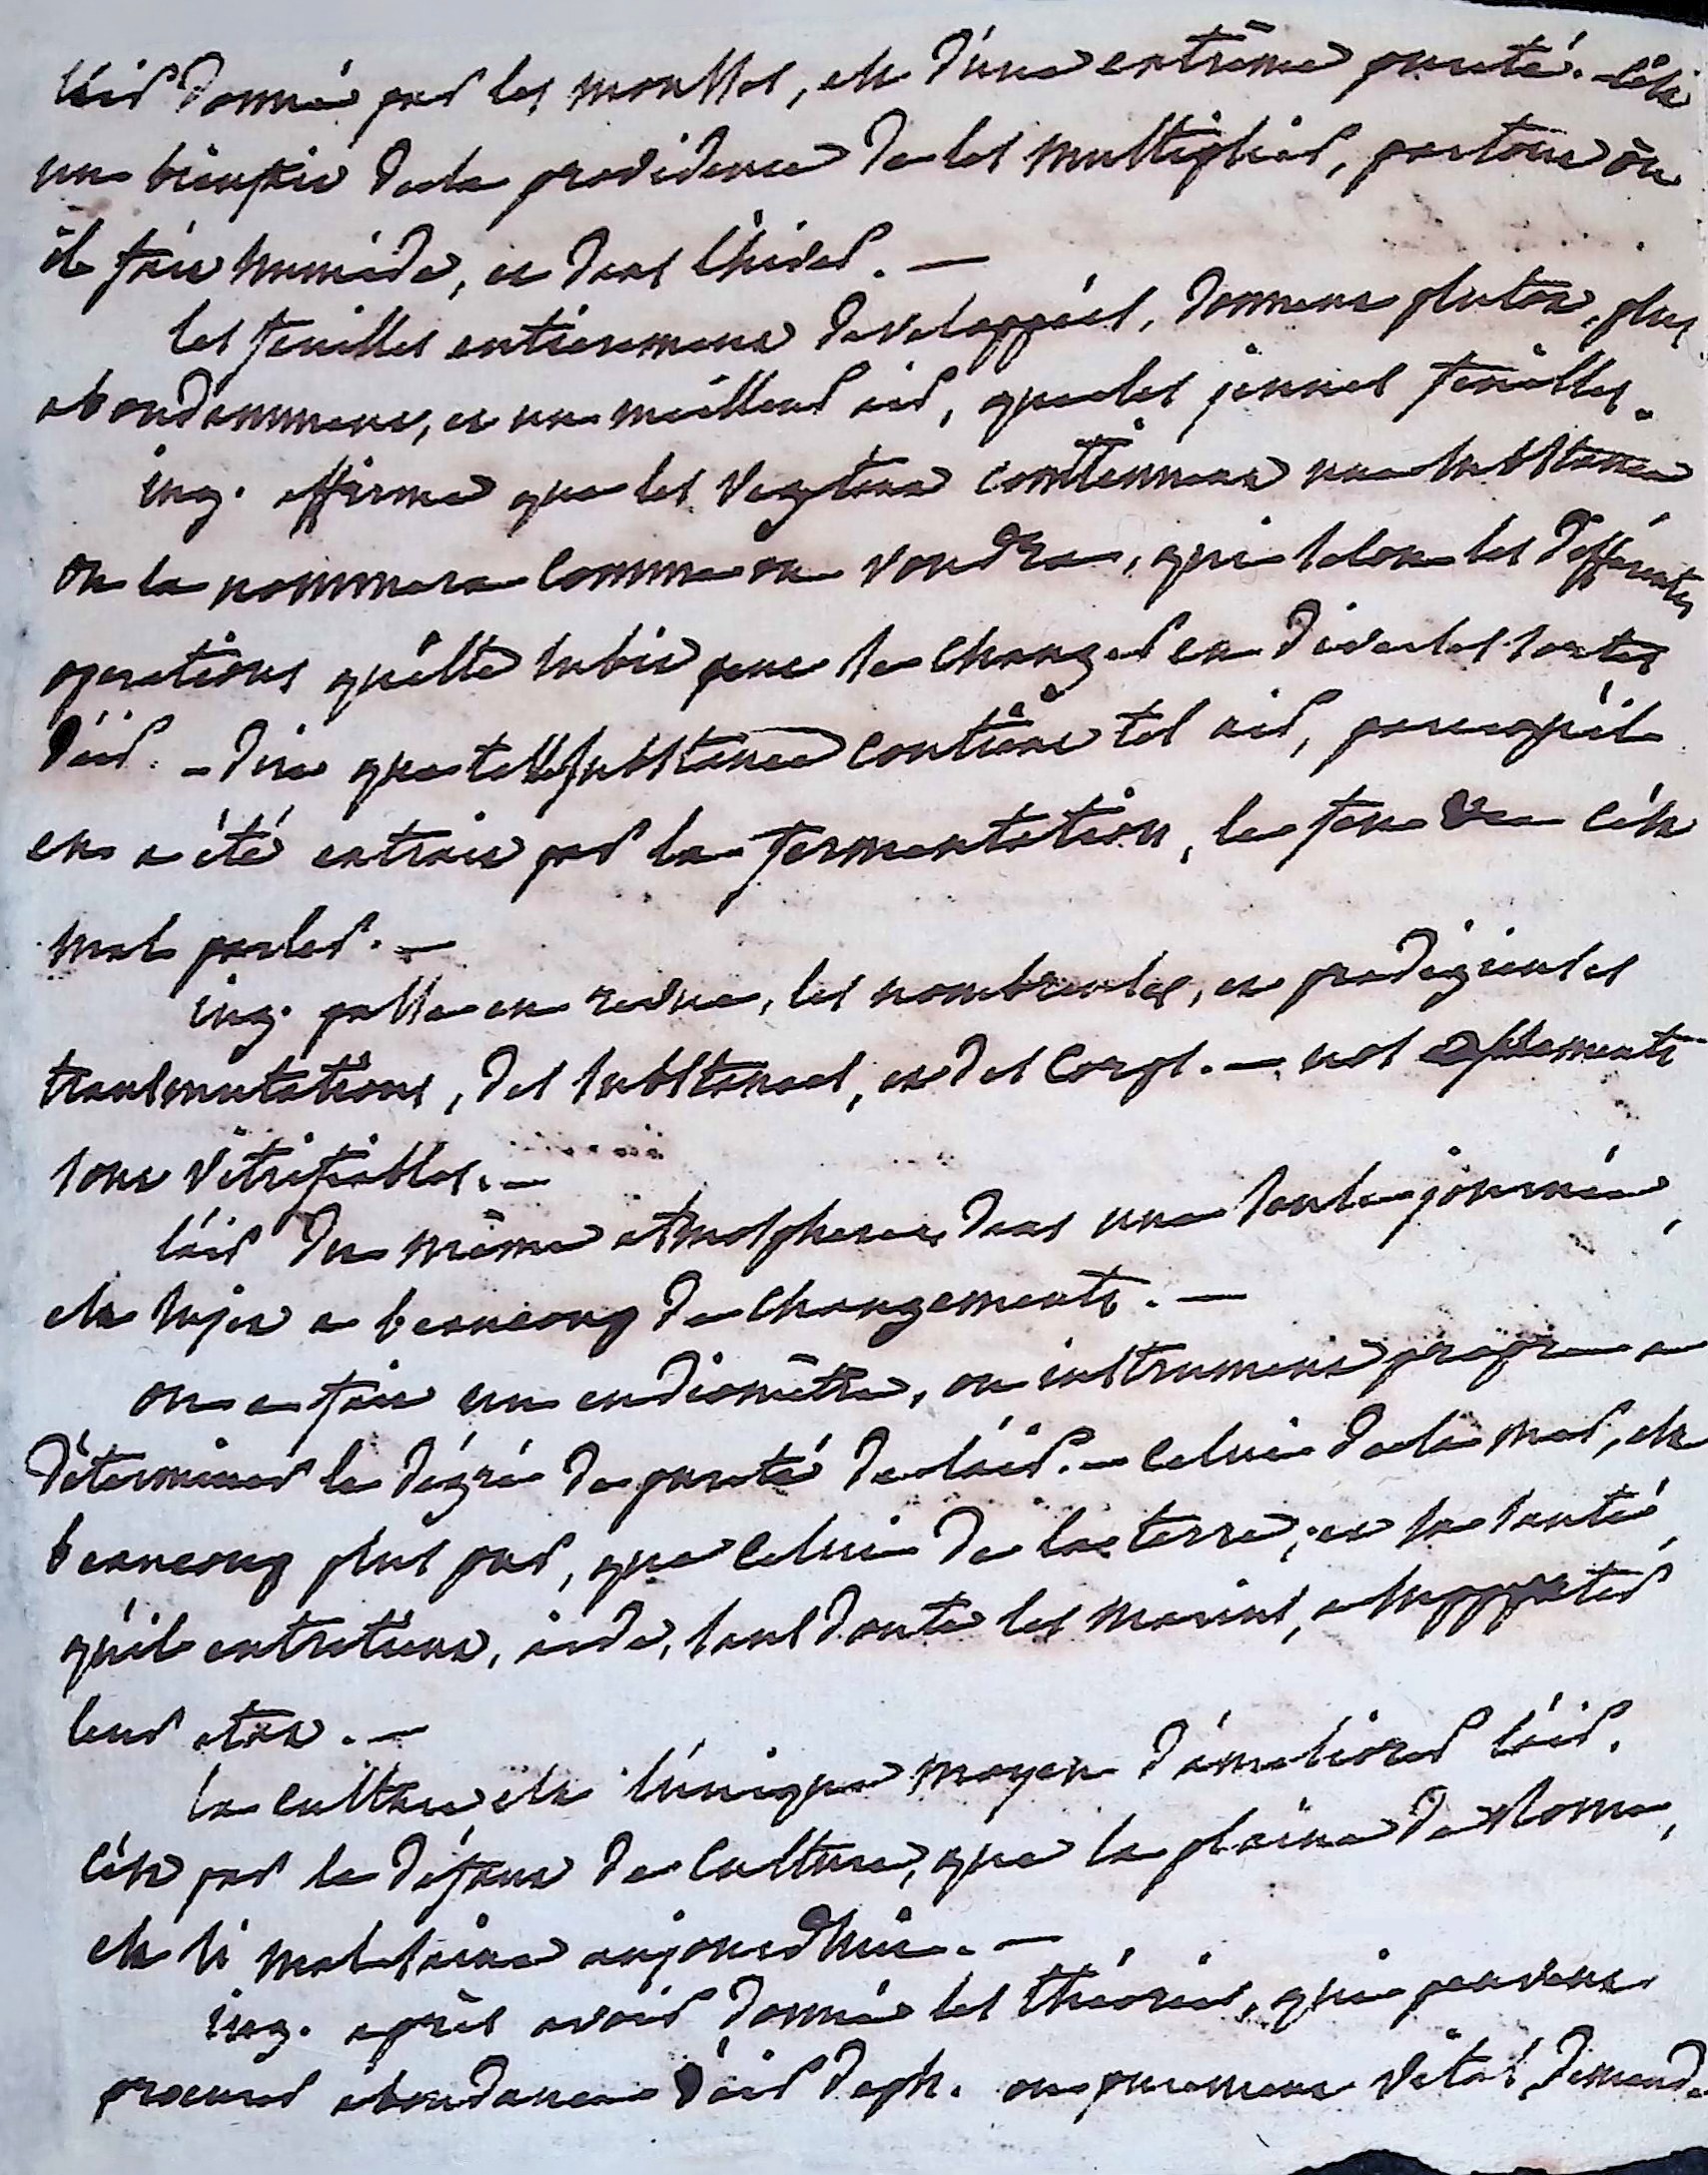 l'air donné par les mousses, est d'une extrême pureté. c'est
un bienfait de la providence de les multiplier, partout où
il fait humide, et dans l'hiver. —
les feuilles entierement developpées, donnent plutot, plus
abondamment, et un meilleur air, que les jeunes feuilles.
ing. affirme que les vegetaux contiennent une substance
on la nommera comme on voudra, qui selon les differentes
operations qu'elle subit peut se changer en diverses sortes
d'air. - dire que telle substance contient tel air, parce qu'il
en a été extrait par la fermentation, le feu &c c'est
mal parler. —
ing. passe en revue, les nombreuses, et prodigieuses
transmutations, des substances, et des corps. — nos
sont vitrifiables. —
l'air du même atmosphere, dans une seule journée,
est sujet a beaucoup de changements. —
on a fait un eudiomêtre, ou instrument propre a
déterminer le dégré de pureté de l'air. - celui de la mer, est
beaucoup plus pur, que celui de la terre, et la santé,
qu'il entretient, aide, sans doute les marins, a supporter
leur etat. —
la culture est l'unique moyen d'améliorer l'air.
c'est par le défaut de culture, que la plaine de Rome,
est si mal saine aujourdhui. —
ing. après avoir donné les théories, qui peuvent
procurer abondance d'air deph. ou purement vital, demande